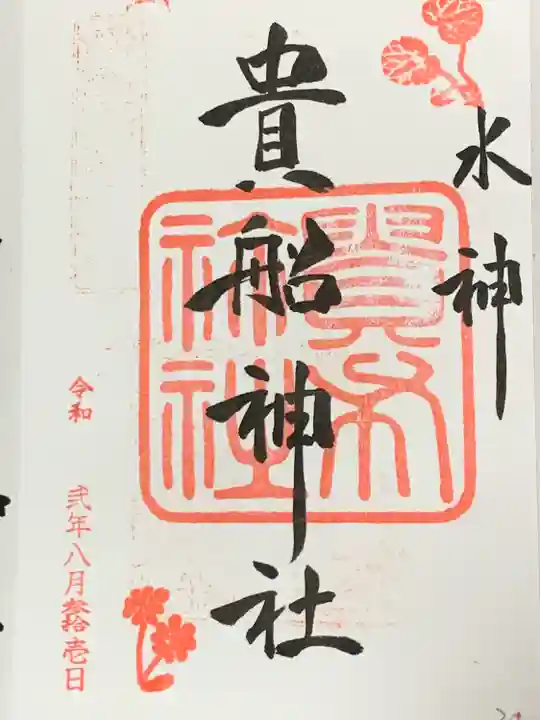 水神
貴船神社
令和 弐年八月参拾壱日